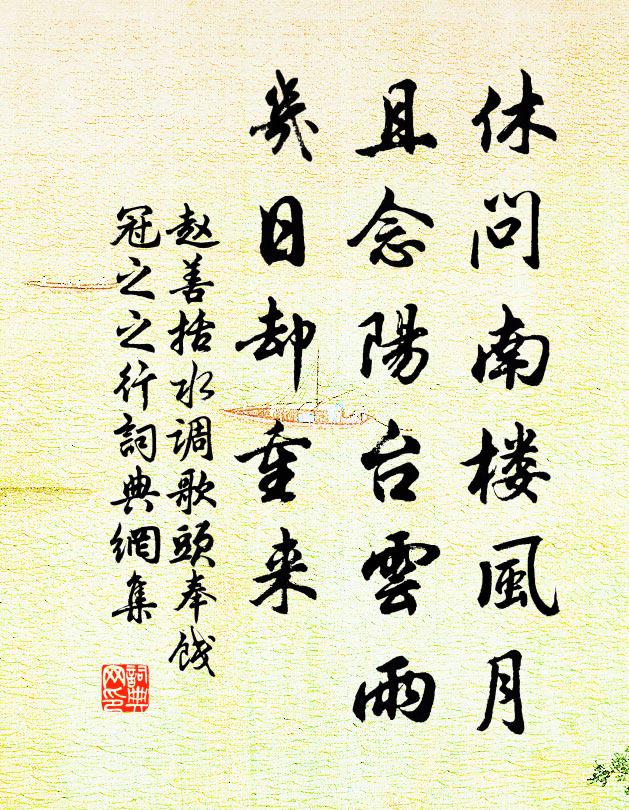 休问南楼風月
且念陽台雲雨
幾日却重来
赵善括水调歌頭奉餞
冠之之行詞典網集
詞典网印